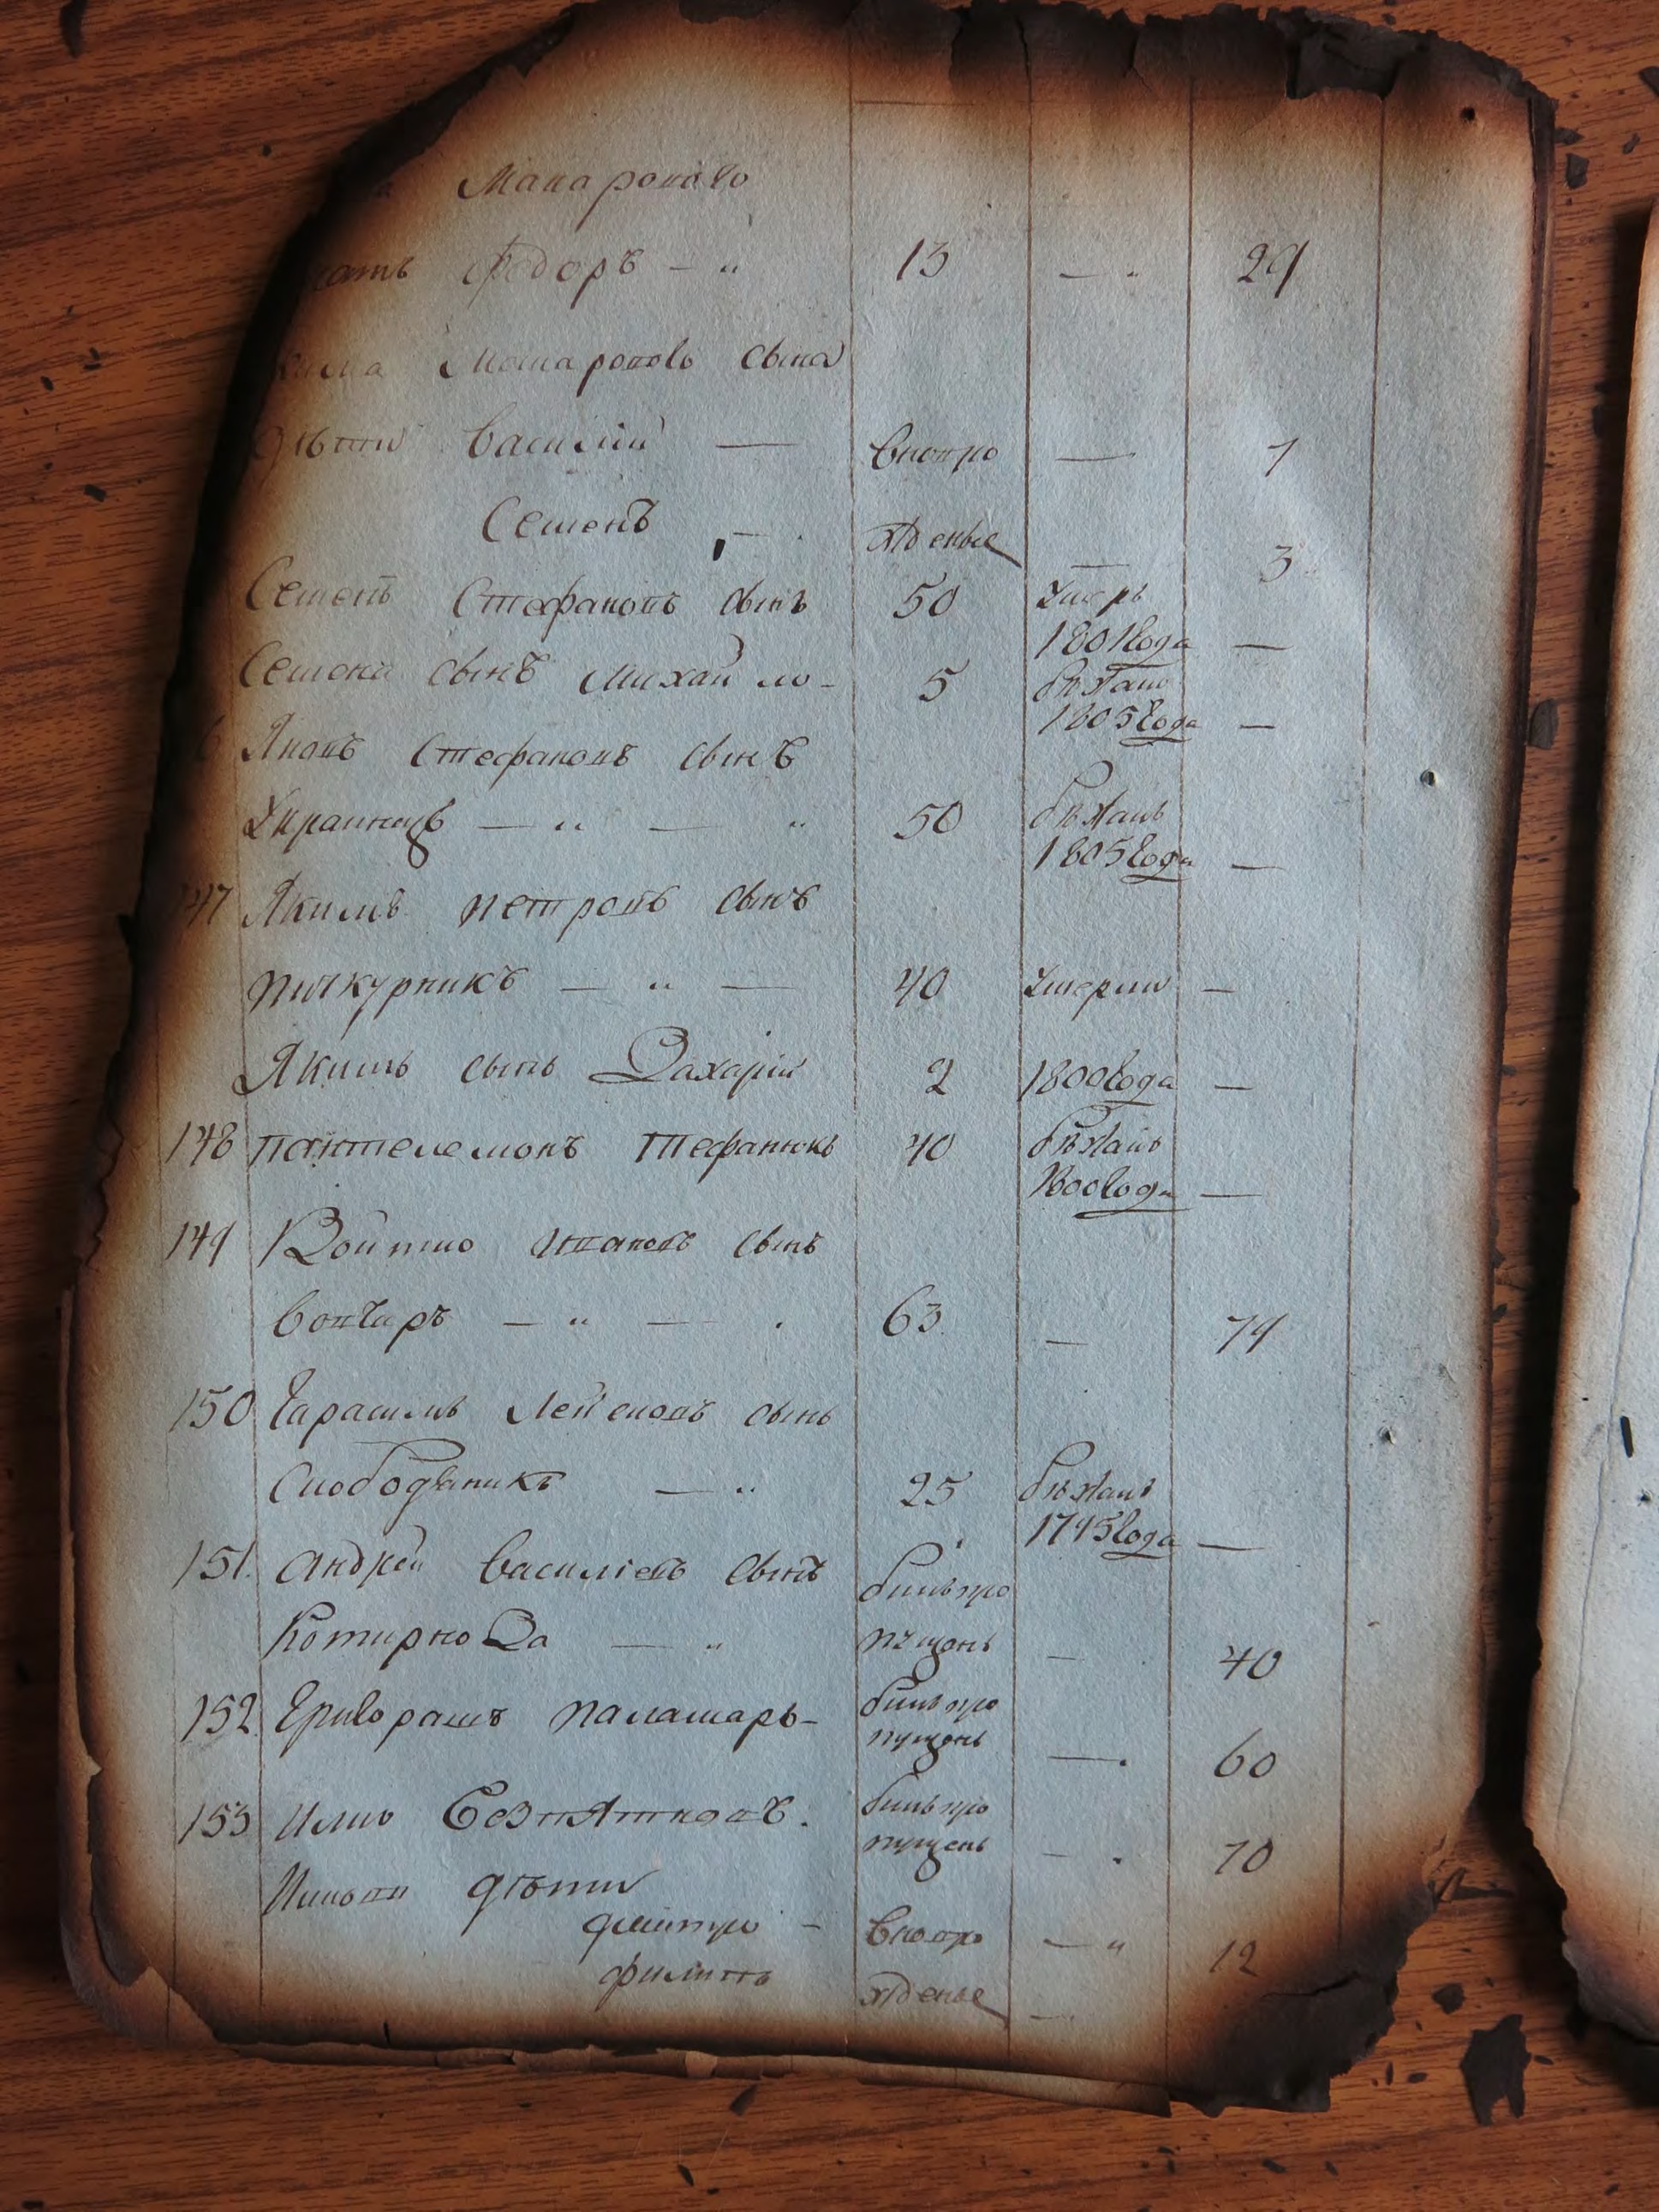 Макарового
Федоръ — " 13 — " 29
Макаровъ сына
дѣти Василий — вновро — 1
Семенъ — жденые — 3
Семенъ Стефановъ сынъ 50 умеръ
1801 года —
Семена сынъ Михайло - 5 бѣжалъ
1805 года —
Яковъ Стефановъ сынъ
Украинецъ — " — " 50 бѣжалъ
1805 года —
147 Якимъ Петровъ сынъ
Пичкурникъ — " — 40 умерли —
Якимъ сынъ Захарій 2 1800 года —
148 Пантелемонъ Стефанюкъ 40 бѣжалъ
1800 года —
149 Войтко Ивановъ сынъ
Бондарь — " — . 63 — 79
150 Гарасимъ сынъ
Слободяникъ — " 25 бѣжалъ
1795 года —
151. Андрей Василіевъ сынъ билъ про
— " пущенъ — 40
152 Григорашъ Паламарь - билъ про
пущенъ — . 60
153 Илко Безпятковъ. билъ про
пущенъ — . 70
дѣти
Дмитро - вновро — " 12
Филипъ жденые —